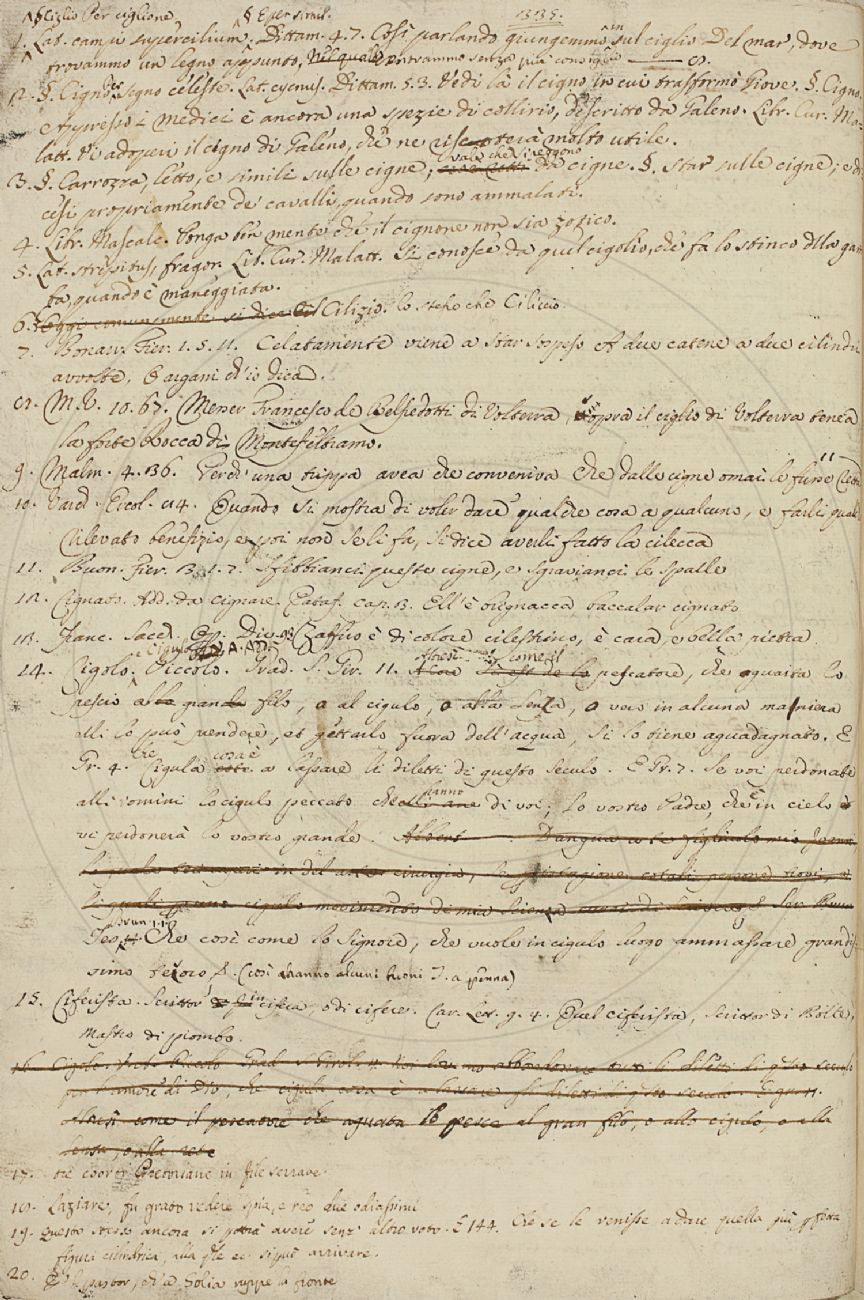 Ciglio Per ciglione § E per simil. 1335.
1. Lat. campi supercilium. Dittam. 4. 7. Così parlando giungemmo in sul ciglio Del mar, dove
trovammo un legno appunto, Nel quale entrammo senza più consiglio
2. §. Cigno, per segno celeste. Lat. cycnus. Dittam. 5. 3. Vedi là il cigno in cui trasformò Giove. §. Cigno
appresso i medici è ancora una spezie di collirio, descritto da Galeno. Libr. Cur. Ma-
latt. Vi adoperi il cigno di Galeno, chè ne riscoterà molto utile.
3. §. Carrozza, letto, e simili sulle cigne; vale che si reggono da cigne. §. Star sulle cigne; e di
cesi propriamente de' cavalli, quando sono ammalati.
4. Libr. Mascalc. Ponga ben mente che il cignone non sia zotico.
5. Lat. strepitus, fragor. Lib. Cur. Malatt. Si conosce da quel cigolio, che fa lo stinco della gam
ba, quando è maneggiata.
6. Oggi comunemente si dice Cilizio. lo stesso che Ciliccio
7. Bonarr. Fier. 1. 5. 11. Celatamente viene a star sospeso A due catene a due cilindri
avvolte, O argani ch'io dica.
8. M. V. 10. 67. Messer Francesco de Belfredotti di Volterra, sopra il ciglio di Volterra tenea
la forte Rocca di Montefeltrano.
9. Malm. 4. 136. Perch' una trippa avea che conveniva Che dalle cigne omai le fusse
10. Varch. Ercol. 84. Quando si mostra di voler dare qualche cosa a qualcuno, e farli qual
rilevato benefizio, e poi non se li fa, si dice averli fatto la cilecca
11. Buon. Fier. 3. 1. 2. Sfibbianci queste cigne, e sgravianci le spalle
12. Cignato. Add. da cignare. Pataf. cap. 3. Ell'è bregnacca baccalar cignato
13. Franc. Sacch. Op. Div. Zaffiro è di colore cilestrino, è cara, e bella pietra
14. Cigolo. Piccolo. Grad. S. Gir. 11. Altresì come il pescatore, che aguaita lo
pescio alla grande filo, o al cigulo, o alla lenza, o vero in alcuna maniera
elli lo può prendere, et gettarlo fuora dell'acqua, si lo tiene aguadagnato. E
Gr. 4. Che Cigula cosa è a lassare li diletti di questo seculo. E Gr. 7. Se voi perdonate
alli uomini lo cigulo peccato che hanno di voi; lo vostro Padre, che è in cielo
vi perdonerà lo vostro grande.
Tes. Brun. 1. 1. Che così come lo Signore, che vuole in cigulo luogo ammassare grandis
simo tesoro &. (così hanno alcuni buoni T. a penna)
15. Ciferista. Scrittor in cifera, o di cifere. Car. Lett. 9. 4. Quel ciferista, scrittor di Bolle,
Mastro di piombo.
16. Cigolo.
per l'amore di Dio, che cigula cosa è a lassare li diletti di questo seculo
Altresì come il pescatore che aguaita lo pesce al gran filo, o allo cigulo, o alla
lenza, o alla rete
17. tre coorti Pretoriane in file serrate
18. Laziare, fu grato vedere spia, e reo due odiassimi
19. Questo stesso ancora si potrà avere senz' altro voto. E 144. Che se le venisse a dare quella più perfetta
figura cilindrica, alla qle ec. si può arrivare.
20. pastor, ch'a Golia ruppe la fronte